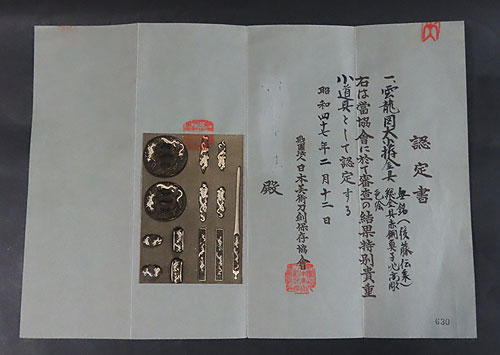 認定書
一、雲龍図大小揃金具
無銘(後藤伝来)
総金具赤銅魚子地高彫
色絵
右は當協會に於て審査の結果特別貴重
小道具として認定する
昭和四十七年二月十二日
日本美術刀剣保存協會
殿
630